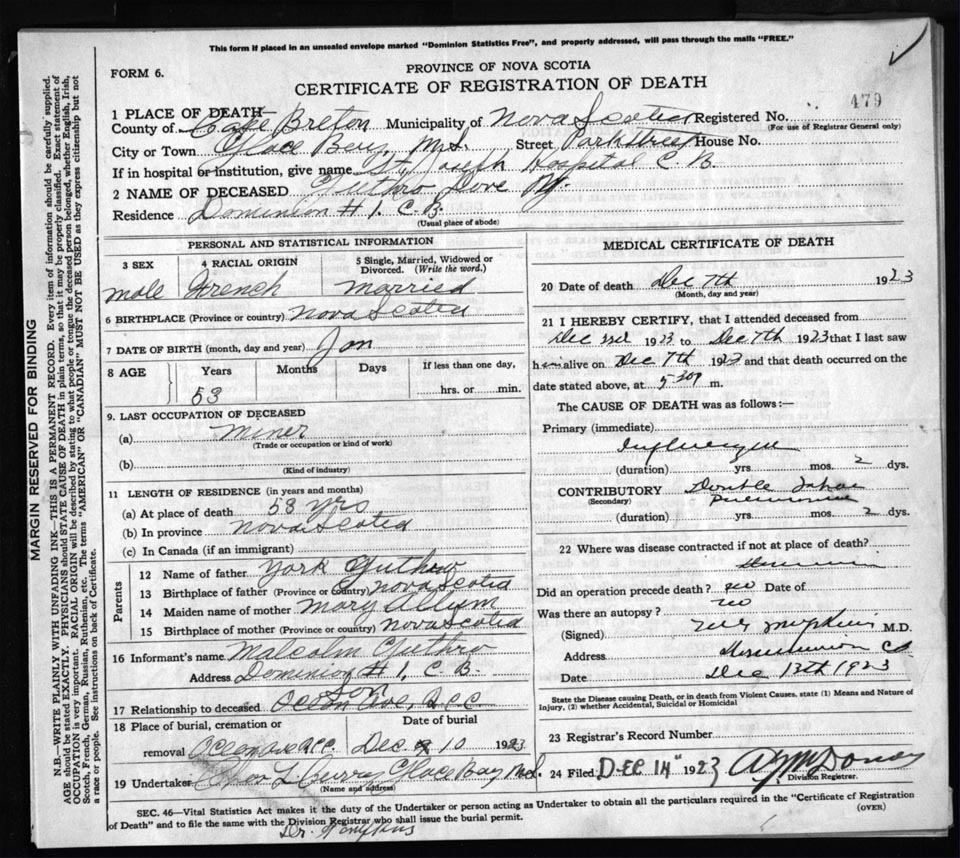 This form if placed in an unsealed envelope marked "Dominion Statistics Free", and properly addressed, will pass through the mails "FREE."
FORM 6.
PROVINCE OF NOVA SCOTIA
CERTIFICATE OF REGISTRATION OF DEATH
479
1 PLACE OF DEATH
County of Cape Breton Municipality of Nova Scotia Registered No.
(For use of Registrar General only)
City or Town Glace Bay, N.S. Street Park Street House No.
If in hospital or institution, give name St Joseph Hospital C. B.
2 NAME OF DECEASED Guthro Dove Y.
Residence Dominion # 1. C. B.
(Usual place of abode)
PERSONAL AND STATISTICAL INFORMATION
3 SEX 4 RACIAL ORIGIN 5 Single, Married, Widowed or Divorced. (Write the word.)
male French married
6 BIRTHPLACE (Province or country) Nova Scotia
7 DATE OF BIRTH (month, day and year) Jan
8 AGE Years Months Days If less than one day,
53 hrs. or min.
9. LAST OCCUPATION OF DECEASED
(a) Miner
(Trade or occupation or kind of work)
(b)
(Kind of industry)
11 LENGTH OF RESIDENCE (in years and months)
(a) At place of death 53 yrs
(b) In province Nova Scotia
(c) In Canada (if an immigrant)
Parents
12 Name of father York Guthro
13 Birthplace of father (Province or Country) Nova Scotia
14 Maiden name of mother Mary
15 Birthplace of mother (Province or Country) Nova Scotia
16 Informant's name Malcolm Guthro
Address Dominion # 1, C. B.
Son
17 Relationship to deceased Ocean Ave, R.C.C.
18 Place of burial, cremation or Date of burial
removal Ocean Ave R.C.C. Dec 10 1923
19 Undertaker Curry Glace Bay N.S.
(Name and address)
MEDICAL CERTIFICATE OF DEATH
20 Date of death Dec 7th 1923
(Month, day and year)
21 I HEREBY CERTIFY, that I attended deceased from
Dec 1923 to Dec 7th 1923 that I last saw
him alive on Dec 7th 1923 and that death occurred on the
date stated above, at m.
The CAUSE OF DEATH was as follows:—
Primary (immediate)
Influenza
(duration) yrs. mos. 2 dys.
CONTRIBUTORY Double Lobar
(Secondary) Pneumonia
(duration) yrs. mos. 2 dys.
22 Where was disease contracted if not at place of death?
Dominion
Did an operation precede death? no Date of
Was there an autopsy? no
(Signed) Tompkins M.D.
Address Dominion CB
Date Dec 13th 1923
State the Disease causing Death, or in death from Violent Causes, state (1) Means and Nature of Injury, (2) whether Accidental, Suicidal or Homicidal
23 Registrar's Record Number
24 Filed DEC 14" 1923
Division Registrar.
SEC. 46—Vital Statistics Act makes it the duty of the Undertaker or person acting as Undertaker to obtain all the particulars required in the "Certificate of Registration
of Death" and to file the same with the Division Registrar who shall issue the burial permit. (OVER)
Dr. Tompkins
MARGIN RESERVED FOR BINDING
N.B.—WRITE PLAINLY WITH UNFADING INK—THIS IS A PERMANENT RECORD. Every item of information should be carefully supplied.
AGE should be stated EXACTLY. PHYSICIANS should STATE CAUSE OF DEATH in plain terms, so that it may be properly classified. Exact statement of
OCCUPATION is very important. RACIAL ORIGIN will be described by stating to what people or tongue the deceased person belonged, whether English, Irish,
Scotch, French, German, Russian, Ruthenian, etc. The terms "AMERICAN" OR "CANADIAN" MUST NOT BE USED as they express citizenship but not
a race or people. See instructions on back of Certificate.